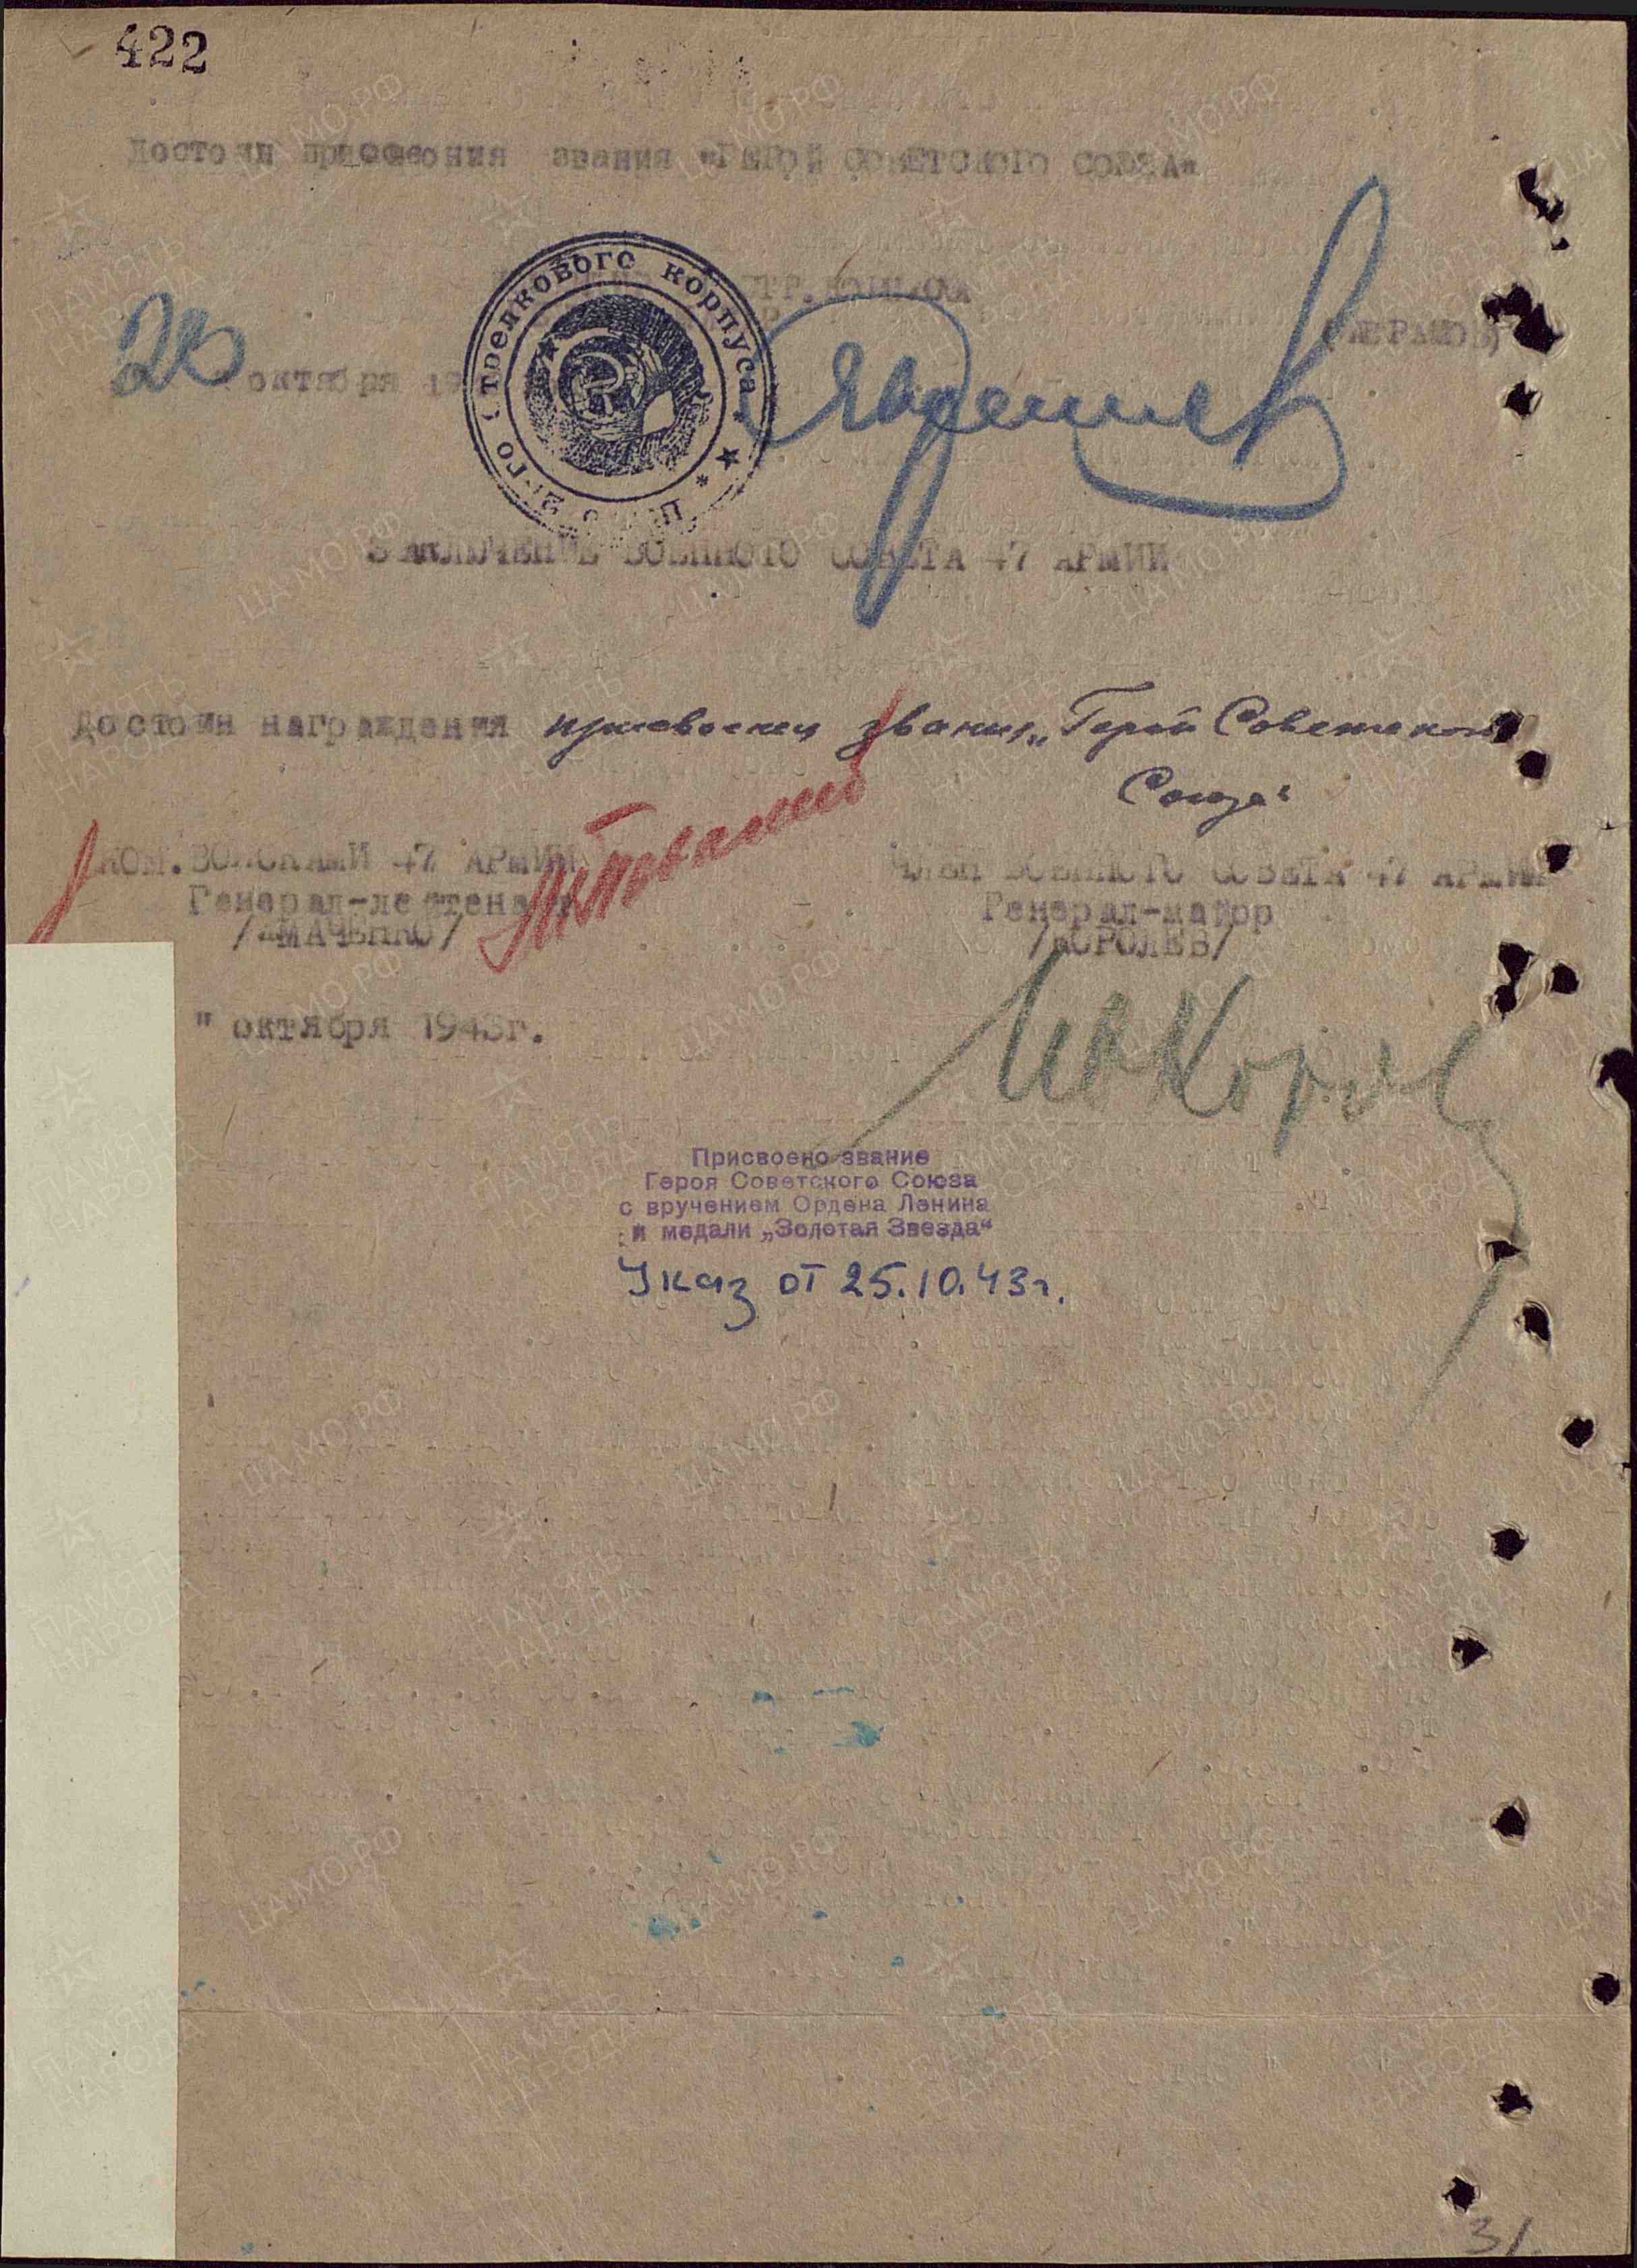 422
Достоин присвоения звания "ГЕРОЙ СОВЕТСКОГО СОЮЗА"
СТР. КОРПУСА
(АБРАМОВ)
20 октября 19
Стрелкового корпуса
21-го
ЗАКЛЮЧЕНИЕ ВОЕННОГО СОВЕТА 47 АРМИИ
Достоин награждения присвоения звания „Герой Советского
Союза"
КОМ. ВОЙСКАМИ 47 АРМИИ
Генерал-лейтенант
/ЖМАЧЕНКО/
ЧЛЕН ВОЕННОГО СОВЕТА 47 АРМИИ
Генерал-майор
/КОРОЛЕВ/
" октября 1943г.
Присвоено звание
Героя Советского Союза
с вручением Ордена Ленина
и медали „Золотая Звезда"
Указ от 25.10.43г.
31
ПАМЯТЬ НАРОДА
ЦАМО.РФ